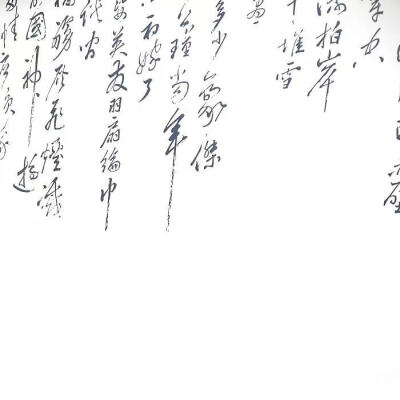 赤壁
穿空
濤拍岸
千堆雪
畫
多少豪傑
公瑾當年
初嫁了
姿英發羽扇綸巾
間
櫓灰飛煙滅
國神遊
情應笑我